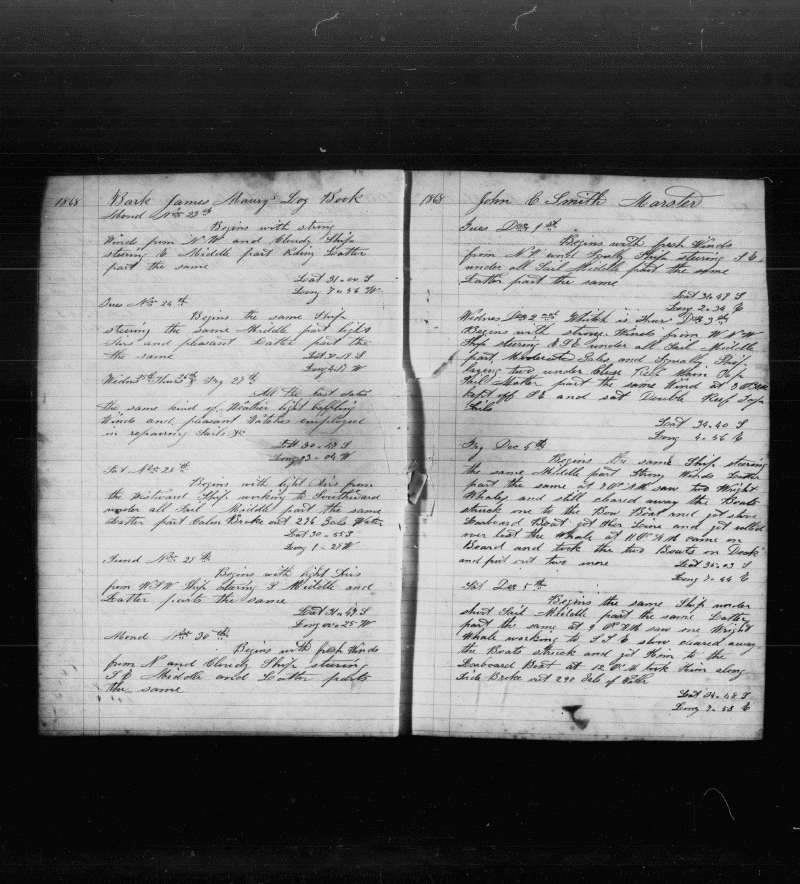 1868 Bark James Maury's Log Book
Mond Nov 23th
Begins with strong
Winds from N.W and Cloudy Ship
steering E Middle part Latter
part the same
Lat 31-00 S
Long 7-56 W
Tues Nov 24th
Begins the same Ship
steering the same Middle part light
Airs and pleasant Latter part the
the same Lat
Long W
Wedns 25th Thurs 26th & Fry 27th
All the last dates
the same kind of Weather light baffling
Winds and pleasant Watches employed
in repairing Sails &c
Lat 30-53 S
Long 3-04 W
Sat Nov 28th
Begins with light Airs from
the Westward Ship working to Southward
under all Sail Middle part the same
Latter part Calm Broke out 236 Gals Water
Lat 30-55 S
Long 1-27 W
Sund Nov 29th
Begins with light Airs
from W.S.W Ship Staring S Middle and
Latter parts the same
Lat 31-49 S
Long 00-25 W
Mond Nov 30th
Begins with fresh Winds
from N and Cloudy Ship steering
S.E Middle and Latter parts
the same
1868 John C Smith Marster
Tues Dec 1st
Begins with fresh Winds
from N.W and Squaly Ship steering S E
under all Sail Middle part the same
Latter part the same
Lat 34-47 S
Long 2-34 E
Wednes Dec 2nd Which is Thur Dec 3th
Begins with strong Winds from W.N.W
Ship steering E.S.E under all Sail Middle
part Moderate Gales and Squaly Ship
laying two under Close Reef Main Top
Sail Latter part the same Wind at 3 OClk
kept off S E and sat Double Reef Top
Sails
Lat 34-40 S
Long 4-56 E
Fry Dec 4th
Begins the same Ship steering
the same Middle part Strong Winds Latter
part the same at 7 O'A.M saw two Wright
Whales and still cleared away the Boats
struck one to the Bow Boat and got stove
Larboard Boat got Line and got rolled
over lost the Whale at 11 O' A M came on
Board and took the two Boats on Deck
and put out two more Lat 35-03 S
Long 7-44 E
Sat Dec 5th
Begins the same Ship under
short Sail Mhiddle part the same Latter
part the same at 9 O' A M saw one Wright
Whale working to S S E slow cleared away
the Boats struck and got Him to the
Starboard Boat at 12 O' M took Him along
Side Broke out 290 Gals of Water
Lat 34-18 S
Long 7-53 E